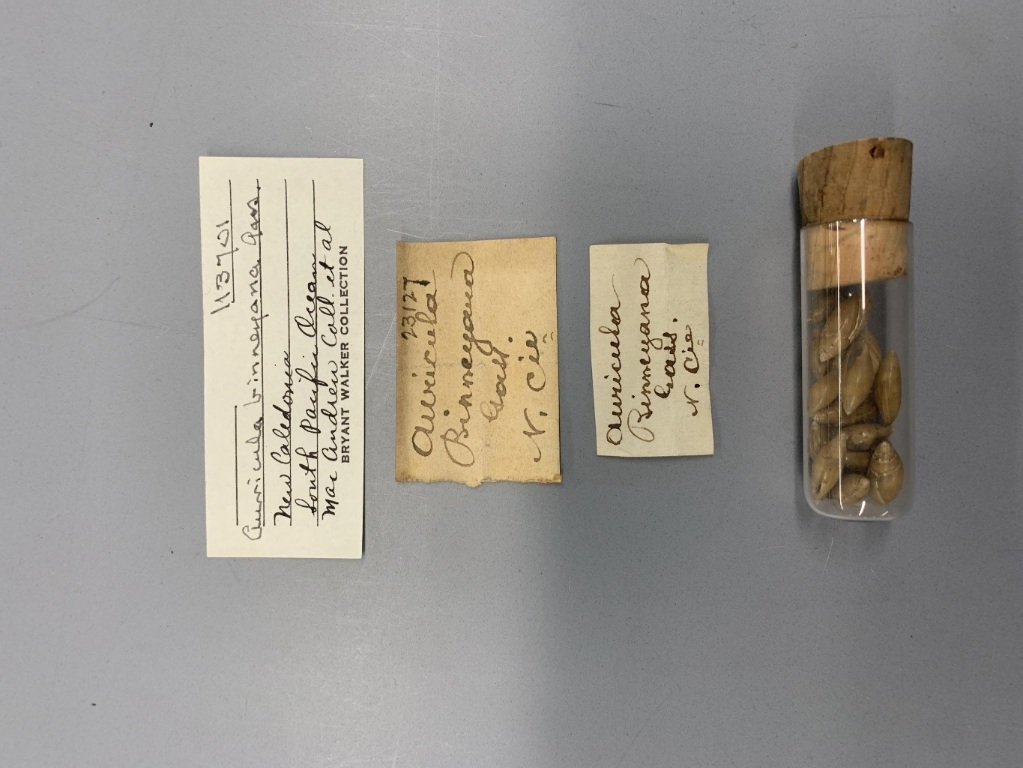 113701
Auricula binneyana, Gass.
New Caledonia
South Pacific Ocean
Mac Andrew Coll. et al
BRYANT WALKER COLLECTION
23127
Auricula
Binneyana
Gass.
N. Cie
Auricula
Binneyana
Gass.
N. Cie